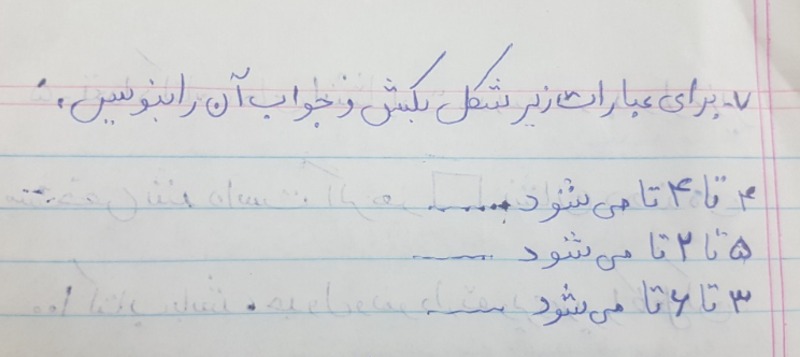 ۷- برای عبارات زیر شکل بکش و جواب آن را بنویس.
۴ تا ۴ تا می شود ........
۵ تا ۲ تا می شود ........
۳ تا ۶ تا می شود ........